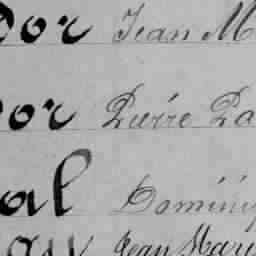 dor Jean M
dor Pierre Pa
al Dominiq
au Jean Marie